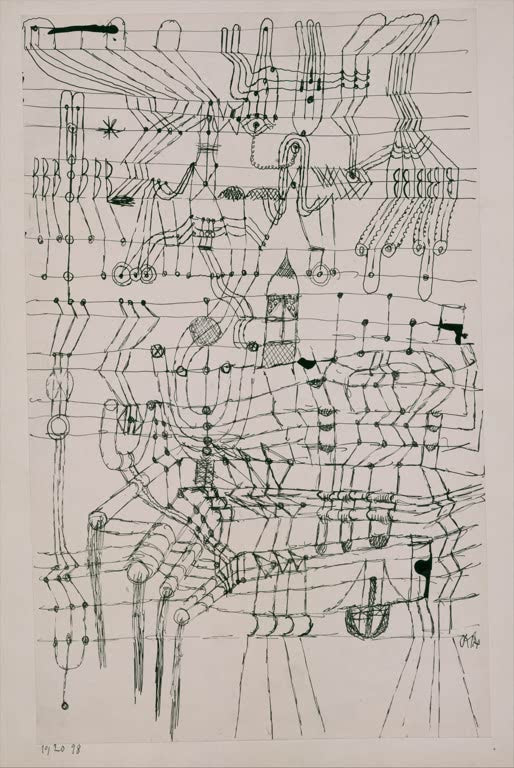 1920 98